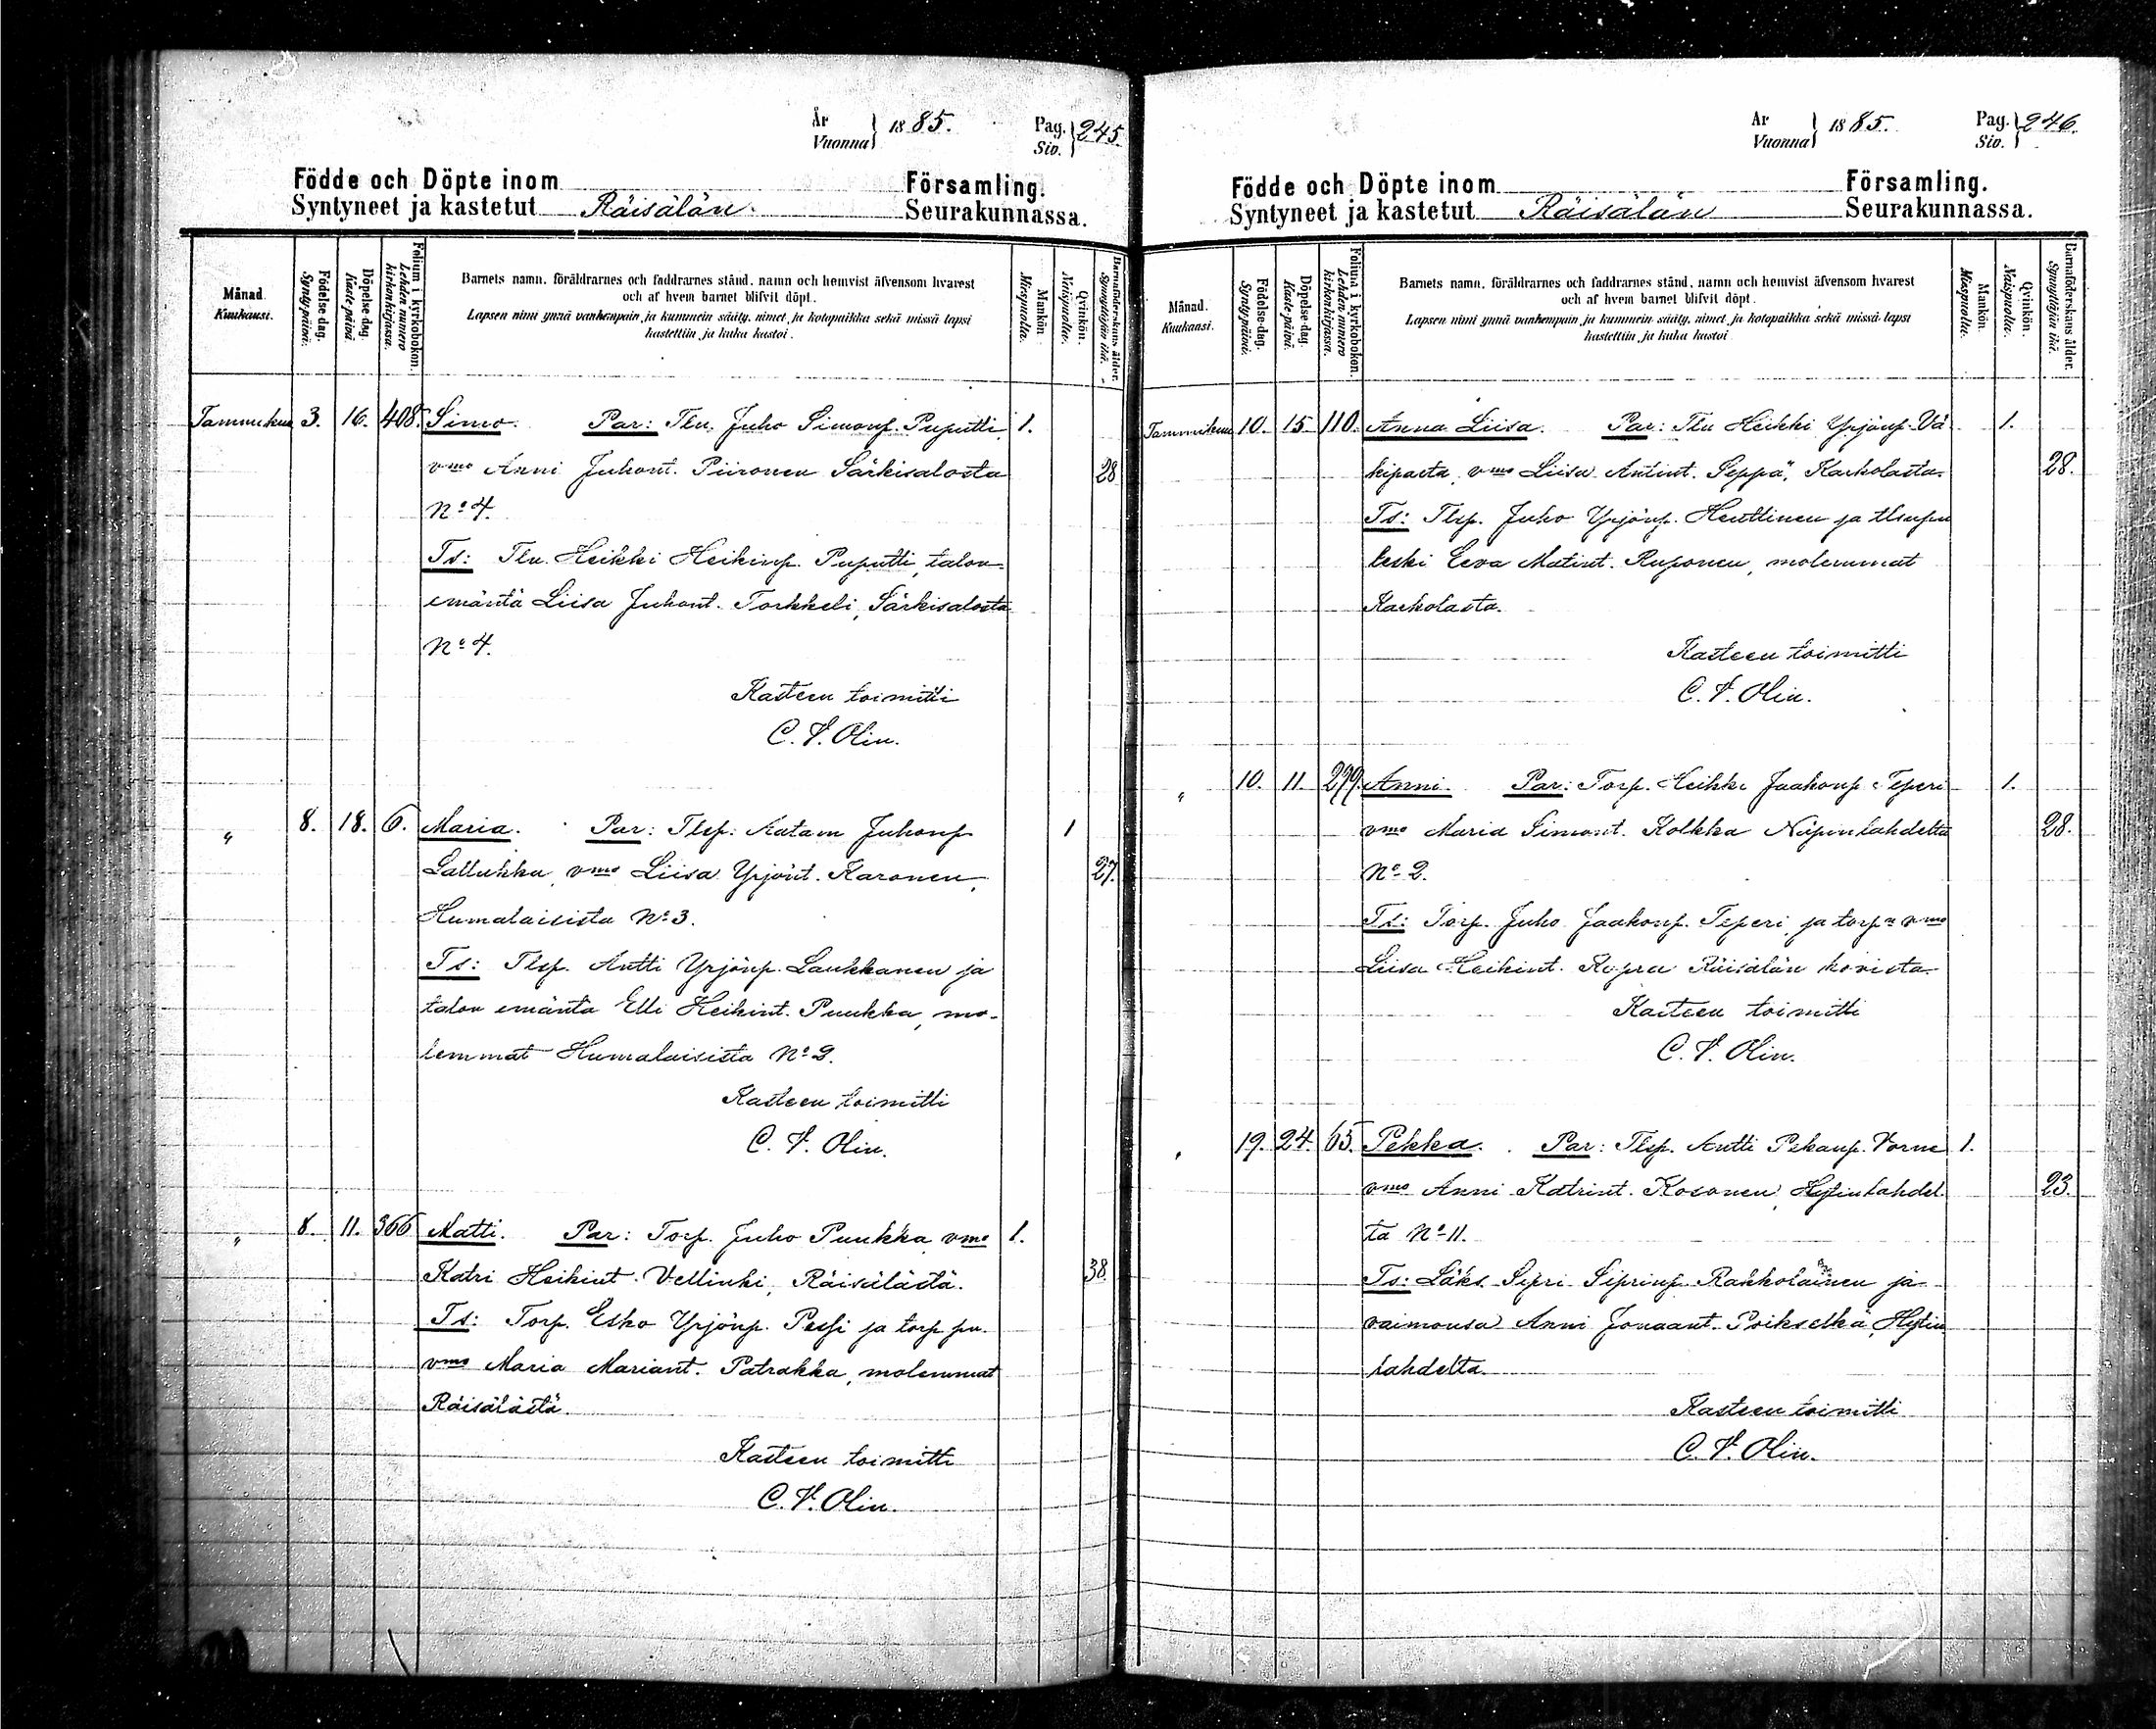 År
Vuonna } 1885. Pag.
Siv. } 245.
Födde och Döpte inom Församling.
Syntyneet ja kastetut Räisälän Seurakunnassa.
Månad.
Kuukausi.
Födelse-dag.
Syntypäivä.
Döpelse-dag.
Kaste-päivä
Folium i kyrkobokon.
Lehden numero
kirkonkirjassa.
Barnets namn, föräldrarnes och faddrarnes stånd, namn och hemvist äfvensom hvarest
och af hvem barnet blifvit döpt.
Lapsen nimi ynnä vanhempain ja kummein sääty, nimet ja kotopaikka sekä missä lapsi
kastettiin ja kuka kastoi.
Mankön.
Miespuolta.
Qvinkön.
Naispuolta.
Barnaföderskans ålder.
Synnyttäjän ikä.
Tammikuu 3. 16. 408. Simo. Par: Tln. Juho Simonp. Puputti, 1.
vmo Anni Juhont. Piironen Särkisalosta 28
No 4.
Ts: Tln. Heikki Heikinp. Puputti, talon-
emäntä Liisa Juhont. Torkkeli, Särkisalosta
No 4.
Kasteen toimitti
C. V. Olin.
" 8. 18. 6. Maria. Par: Tlsp. Aatam Juhonp 1
Lallukka, vmo Liisa Yrjönt. Karonen, 27.
Humalaisista No 3.
Ts: Tlsp. Antti Yrjönp. Laukkanen ja
talon emäntä Elli Heikint. Puukka, mo-
lemmat Humalaisista No 2.
Kasteen toimitti
C. V. Olin.
" 8. 11. 366 Matti. Par: Torp. Juho Puukka, vmo 1.
Katri Heikint. Vellinki, Räisälästä. 38
Ts: Torp. Esko Yrjönp. Pessi ja torp. pn.
vmo Maria Mariant. Patrakka, molemmat
Räisälästä.
Kasteen toimitti
C. V. Olin.
År
Vuonna } 1885. Pag.
Siv. } 246.
Födde och Döpte inom Församling.
Syntyneet ja kastetut Räisälän Seurakunnassa.
Månad.
Kuukausi.
Födelse-dag.
Syntypäivä.
Döpelse-dag.
Kaste-päivä.
Folium i kyrkobokon.
Lehden numero
kirkonkirjassa.
Barnets namn, föräldrarnes och faddrarnes stånd, namn och hemvist äfvensom hvarest
och af hvem barnet blifvit döpt.
Lapsen nimi ynnä vanhempain ja kummein sääty, nimet ja kotopaikka sekä missä lapsi
kastettiin ja kuka kastoi
Mankön.
Miespuolta.
Qvinkön.
Naispuolta.
Barnaföderskans ålder.
Synnyttäjän ikä.
Tammikuu 10. 15 110. Anna Liisa. Par: Tln Heikki Yrjönp. Vä- 1.
kiparta, vmo Liisa Antint. Seppä, Karkolasta. 28.
Ts: Tlsp. Juho Yrjönp. Henttinen ja
leski Eeva Matint. Ruponen, molemmat
Karkolasta.
Kasteen toimitti
C. V. Olin.
" 10. 11. 299. Anni. Par: Torp. Heikki Jaakonp Teperi 1.
vmo Maria Simont. Kolkka Näpinlahdelta 28.
No 2.
Ts: Torp. Juho Jaakonp. Teperi ja torpn vmo
Liisa Heikint. Kopra Räisälän hovista.
Kasteen toimitti
C. V. Olin.
" 19. 24. 65. Pekka. Par: Tlsp. Antti Pekanp. Vorne 1.
vmo Anni Katrint. Kosonen, Hytinlahdel- 23.
ta No 11.
Ts: Läks. Sipri Siprinp Rakkolainen ja
vaimonsa Anni Jonaant. Poikselkä, Hytin
lahdelta.
Kasteen toimitti
C. V. Olin.